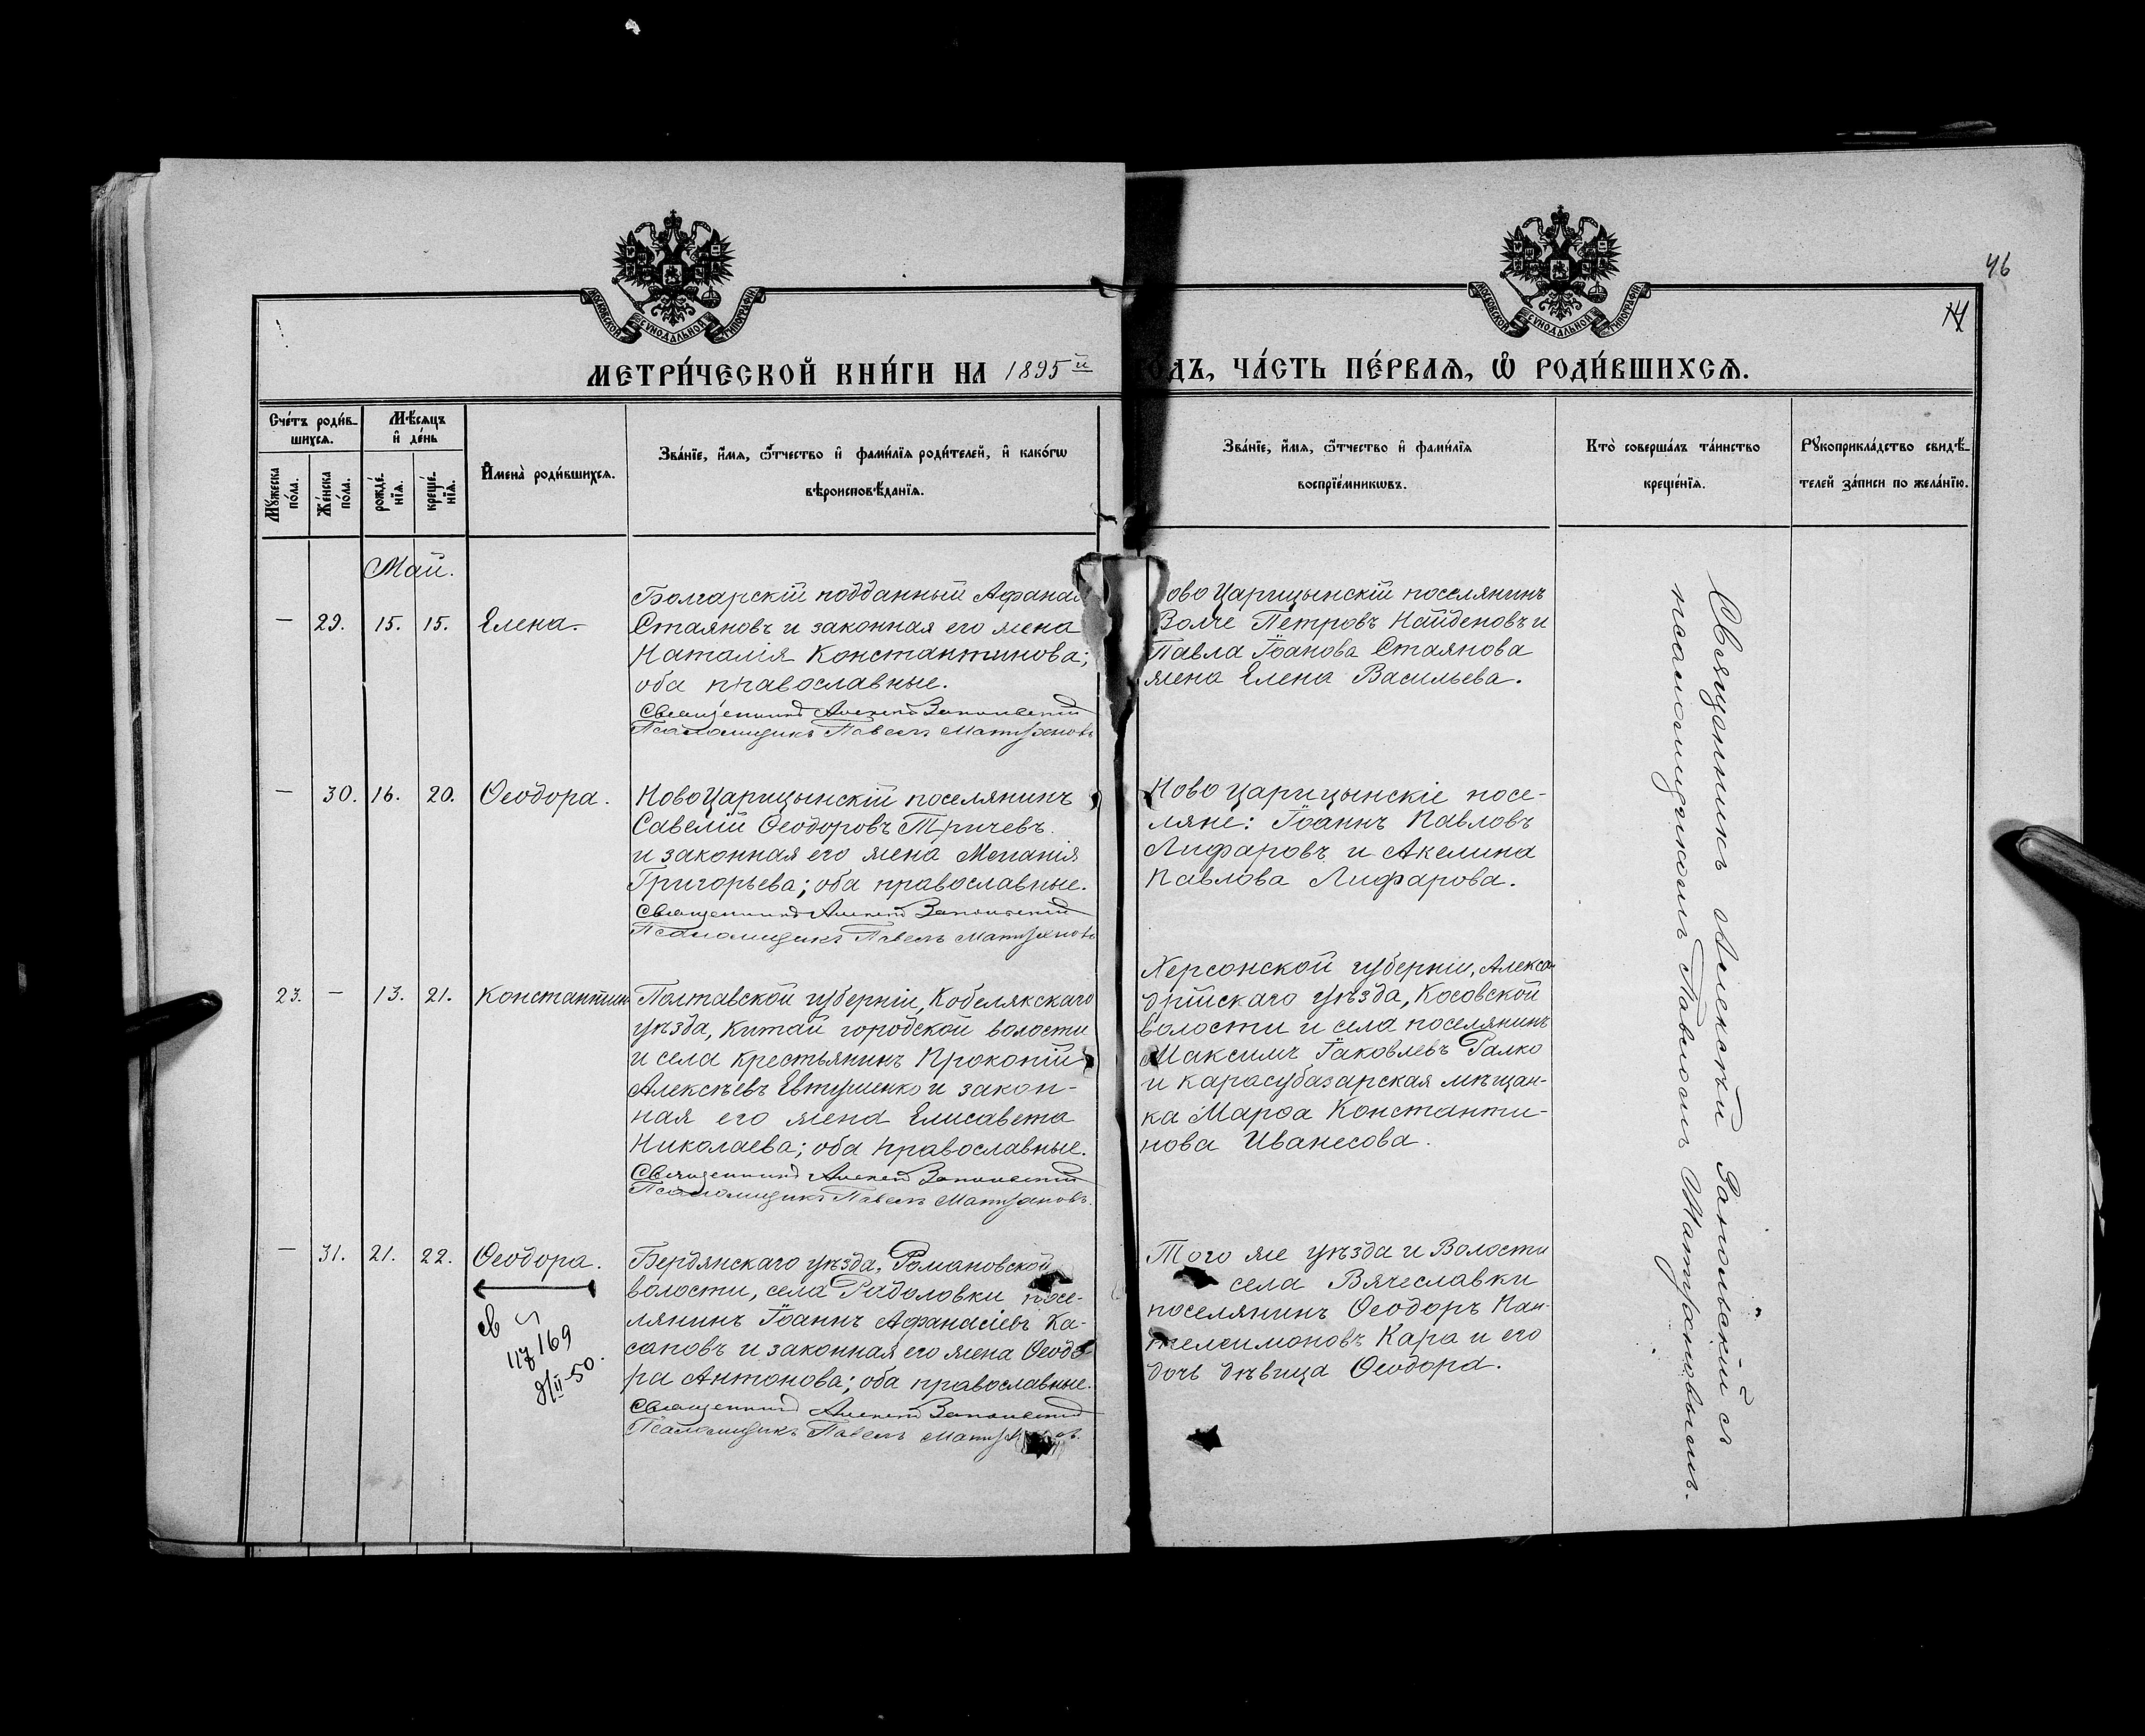 МОСКОВСКОЙ СѴНОДАЛЬНОЙ ТИПОГРАФІИ
МОСКОВСКОЙ СѴНОДАЛЬНОЙ ТИПОГРАФІИ
46
14
МЕТРИ́ЧЕСКОЙ КНИ́ГИ НА 1895й
ОДЪ, ЧА́СТЬ ПЕ́РВАѦ, Ѡ РОДИ́ВШИХСѦ.
Сче́тъ роди́в-
шихсѧ.
Мꙋ́жеска
по́ла.
Же́нска
по́ла.
Мѣ́сѧцъ
и҆ де́нь
рожде́-
нїѧ.
креще́-
нїѧ.
И҆мена̀ роди́вшихсѧ.
Зва́нїе, и҆́мѧ, ѻ҆́тчество и҆ фами́лїѧ роди́телей, и҆ како́гѡ
вѣроисповѣ́данїѧ.
Зва́нїе, и҆́мѧ, ѻ҆́тчество и҆ фами́лїѧ
воспрїе́мникѡвъ.
Кто̀ соверша́лъ та́инство
креще́нїѧ.
Рꙋкоприкла́дство свидѣ́-
телей за́писи по жела́нїю.
Май.
— 29. 15. 15. Елена.
Болгарскій подданный Афанас
Стаяновъ и законная его жена
Наталія Константинова;
оба православные.
Священникъ Алексѣй Запольскій
Псаломщикъ Павелъ
ово Царицынскій поселянинъ
Волче Петровъ Найденовъ и
Павла Іоанова Стаянова
жена Елена Васильева.
— 30. 16. 20. Ѳеодора.
Ново Царицынскій поселянинъ
Савелій Ѳеодоровъ Тричевъ
и законная его жена Меланія
Григорьева; оба православные.
Священникъ Алексѣй Запольскій
Псаломщикъ Павелъ
Ново Царицынскіе посе-
ляне: Іоаннъ Павловъ
Лифаровъ и Акелина
Павлова Лифарова.
23. — 13. 21. Константинъ
Полтавской губерніи, Кобелякскаго
уѣзда, Китай городской волости
и села крестьянинъ Прокопій
Алексѣевъ Евтушенко и закон-
ная его жена Елисавета
Николаева; оба православные.
Священникъ Алексѣй Запольскій
Псаломщикъ Павелъ
Херсонской губерніи, Алексан
дрійскаго уѣзда, Косовской
волости и села поселянинъ
Максимъ Іаковлевъ Галко
и карасубазарская мѣщан-
ка Марѳа Константи-
нова Иванесова.
— 31. 21. 22. Ѳеодора.
Бердянскаго уѣзда, Романовской
волости, села Радоловки посе-
лянинъ Іоаннъ Афанасіевъ Ка-
саповъ и законная его жена Ѳеодо
ра Антонова; оба православные.
Священникъ Алексѣй Запольскій
Псаломщикъ Павелъ
Того же уѣзда и Волости
села Вячеславки
поселянинъ Ѳеодоръ Пан-
телеимоновъ Кара и его
дочь дѣвица Ѳеодора.
св
169
II-50.
Священникъ Алексѣй Запольскій съ
псаломщикомъ Павломъ